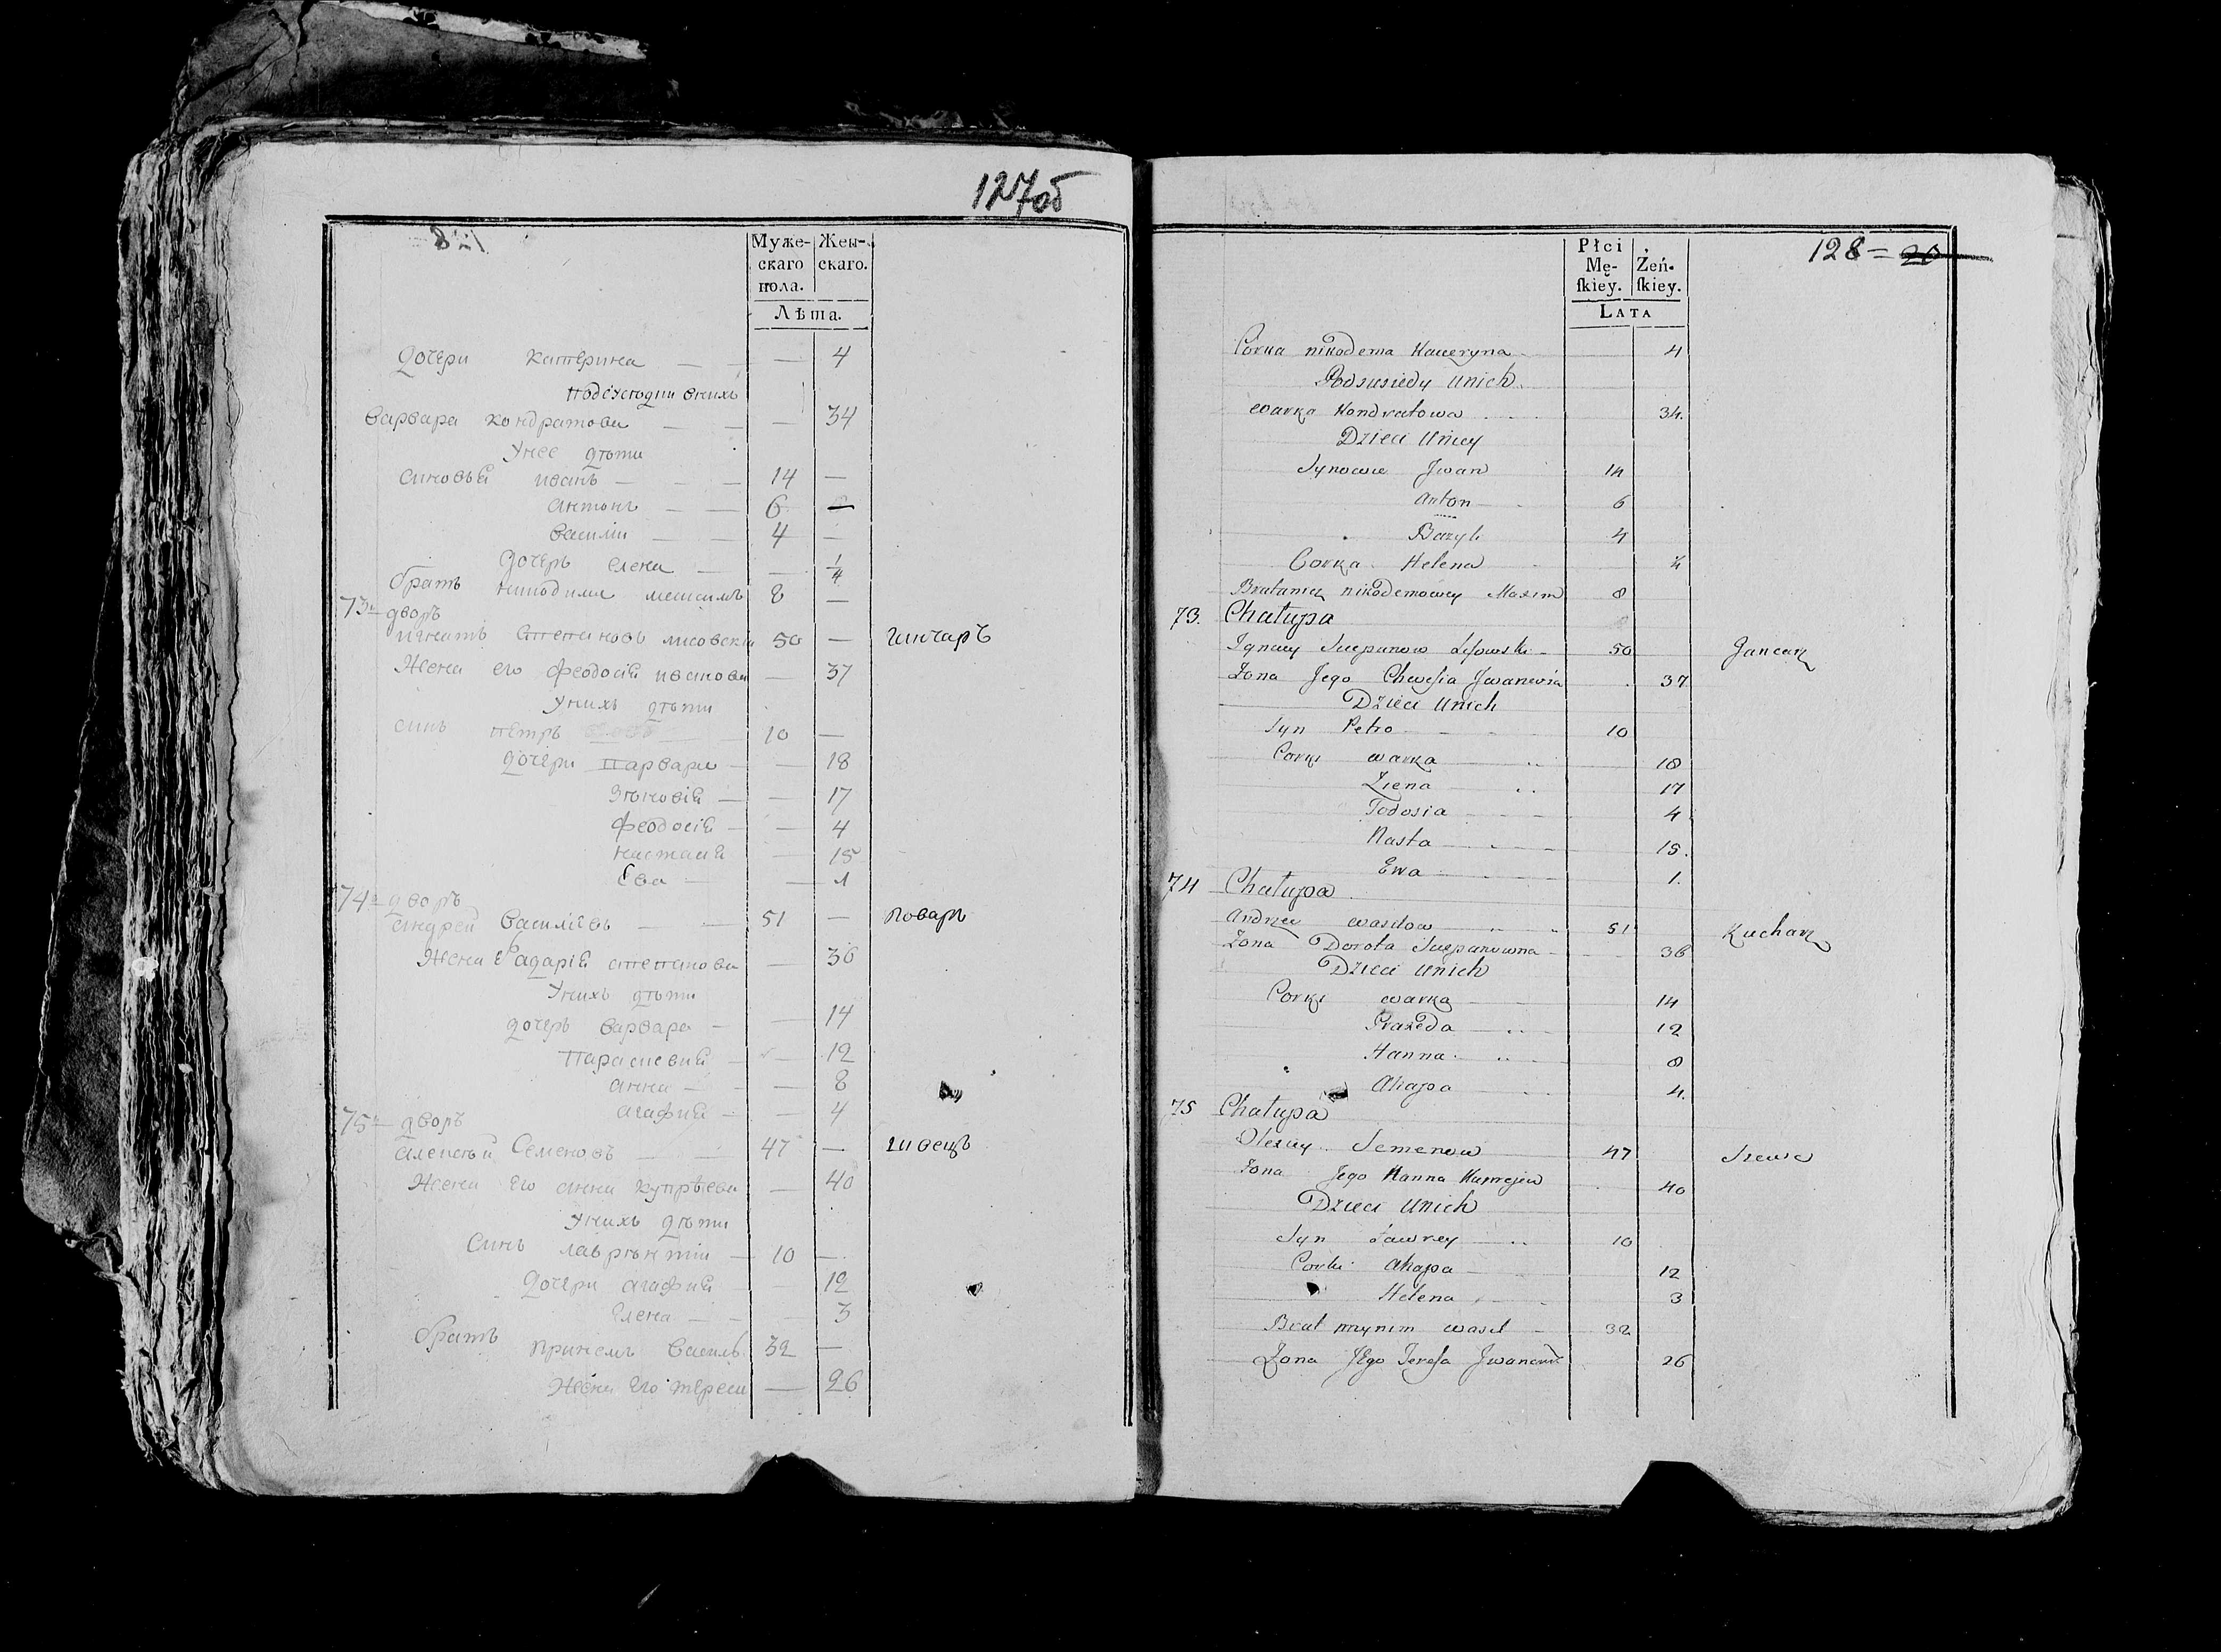 127об
Муже- Жен-
скаго скаго.
пола.
Лѣта.
дочери катерина — — — 4
подсусѣдни внихъ
варвара кондратова — — — 34
Унее дѣти
синовья иванъ — — — 14 —
антонъ — — 6 —
василіи — — 4 —
дочерь елена — — 1/4
братъ никодима максимъ 8 —
73й дворъ
игнатъ степановъ лисовскіи 50 — гинчаръ
Жена его феодосія иванова — 37
Унихъ дѣти
синъ петръ — 10 —
дочери варвара — — 18
зѣновія — — 17
феодосія — — 4
настасія — 15
Ева — — 1
74й дворъ
андрей василіевъ — — 51 — поваръ
Жена Его дарія степанова — 36
Унихъ дѣти
дочерь варвара — — 14
Парасковия — — 12
анна — — 8
агафия — — 4
75й дворъ
алексѣй Семеновъ — — 47 — швецъ
Жена Его анна купрѣева — 40
Унихъ дѣти
Синъ лаврѣнтіи — 10 —
дочери агафия — — 12
Елена — — 3
братъ принемъ василь 32 —
Жена Его тереса — 26
128 = 20
Płci Żeń-
Mę- ſkiey.
ſkiey.
LATA
Corka nikodema Kateryna 4
Podsusiedy unich
warka Kondratowa 34.
Dzieci uniey
Synowie Jwan 14
anton 6
Bazyli 4
Corka Helena 1/4
Bratanicz nikodemowey Maxim 8
73. Chałupa
Ignacy Stepanow Liſowski 50 Gancarz
Żona Jego Chwesia Jwanowna 37
Dzieci unich
Syn Petro 10
Corki warka 18
Ziena 17
Todosia 4
Nasta 15.
Ewa 1.
74 Chałupa
andrzey wasilow 51 Kucharz
Żona Dorota Stepanowna 36
Dzieci unich
Corki warka 14
Praxeda 12
Hanna 8
Ahapa 4.
75 Chałupa
Olexiey Semenow 47 Szewc
Żona Jego Hanna Kuprejew 40
Dzieci unich
Syn Ławrey 10
Corki Ahapa 12
Helena 3
Brat przynim wasil 32
Żona JEgo Tereſa Jwanowna 26